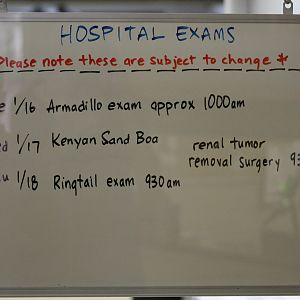 HOSPITAL EXAMS
Please note these are subject to change *
e 1/16 Armadillo exam approx 1000am
d 1/17 Kenyan Sand Boa renal tumor
removal surgery 93
u 1/18 Ringtail exam 930am